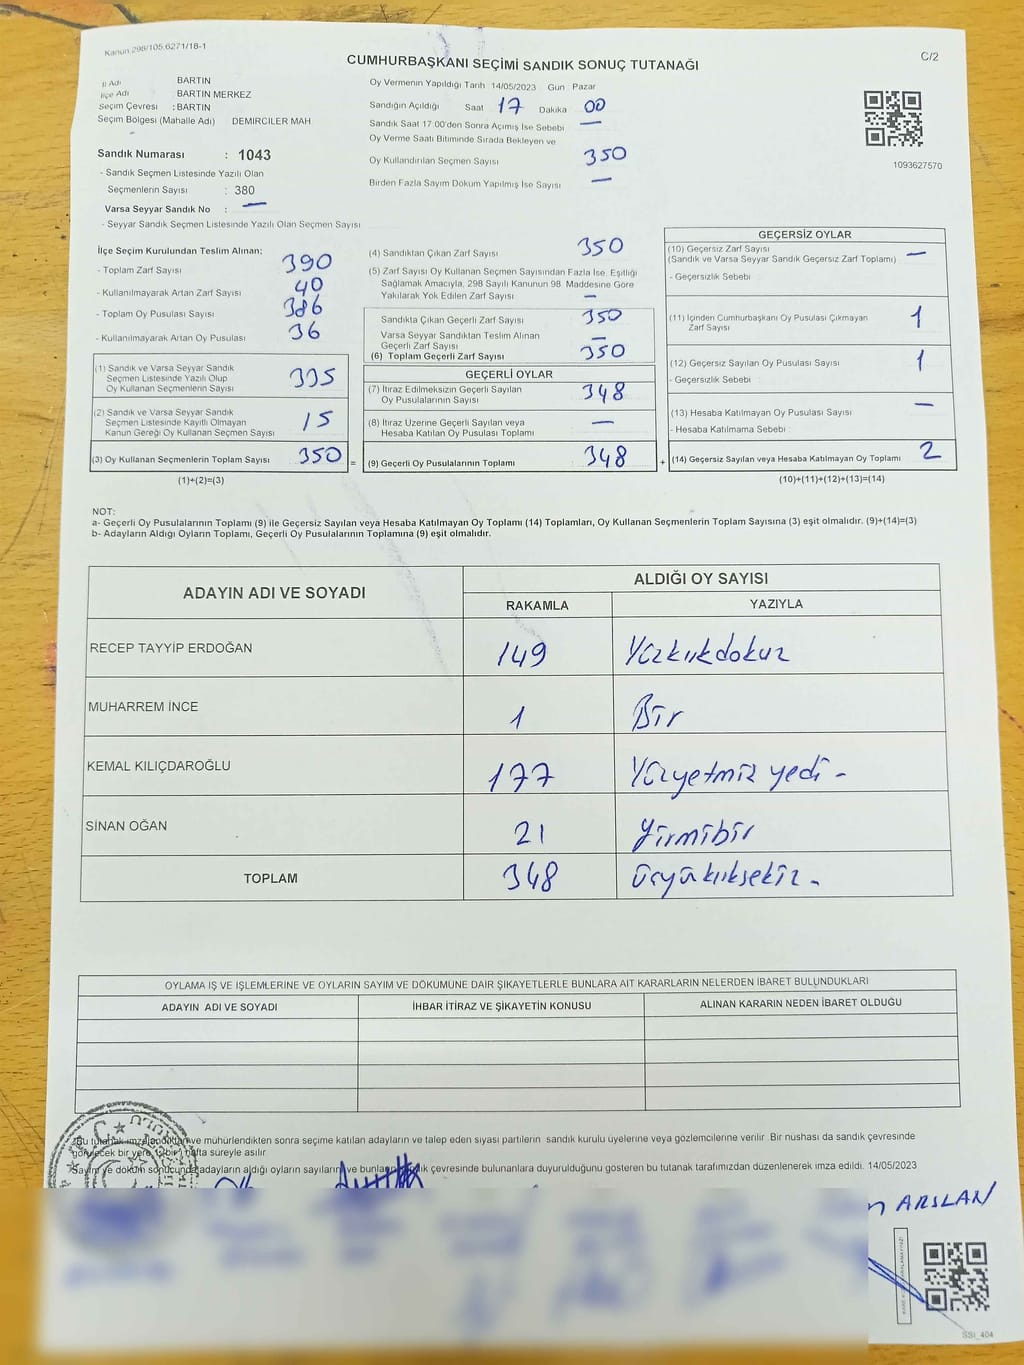 Kanun 298/105,6271/18-1
CUMHURBAŞKANI SEÇİMİ SANDIK SONUÇ TUTANAĞI
C/2
İl Adı BARTIN
İlçe Adı BARTIN MERKEZ
Seçim Çevresi : BARTIN
Seçim Bölgesi (Mahalle Adı) DEMIRCILER MAH
Sandık Numarası : 1043
- Sandık Seçmen Listesinde Yazılı Olan
Seçmenlerin Sayısı : 380
Varsa Seyyar Sandık No : —
- Seyyar Sandık Seçmen Listesinde Yazılı Olan Seçmen Sayısı
Oy Vermenin Yapıldığı Tarih 14/05/2023 Gün Pazar
Sandığın Açıldığı Saat 17 Dakika 00
Sandık Saat 17:00'den Sonra Açımış İse Sebebi —
Oy Verme Saati Bitiminde Sırada Bekleyen ve
Oy Kullandırılan Seçmen Sayısı 350
Birden Fazla Sayım Döküm Yapılmış İse Sayısı —
1093627570
İlçe Seçim Kurulundan Teslim Alınan;
- Toplam Zarf Sayısı 390
- Kullanılmayarak Artan Zarf Sayısı 40
- Toplam Oy Pusulası Sayısı 386
- Kullanılmayarak Artan Oy Pusulası 36
(1) Sandık ve Varsa Seyyar Sandık
Seçmen Listesinde Yazılı Olup
Oy Kullanan Seçmenlerin Sayısı 335
(2) Sandık ve Varsa Seyyar Sandık
Seçmen Listesinde Kayıtlı Olmayan
Kanun Gereği Oy Kullanan Seçmen Sayısı 15
(3) Oy Kullanan Seçmenlerin Toplam Sayısı 350 =
(1)+(2)=(3)
(4) Sandıktan Çıkan Zarf Sayısı 350
(5) Zarf Sayısı Oy Kullanan Seçmen Sayısından Fazla İse, Eşitliği
Sağlamak Amacıyla, 298 Sayılı Kanunun 98. Maddesine Göre
Yakılarak Yok Edilen Zarf Sayısı —
Sandıkta Çıkan Geçerli Zarf Sayısı 350
Varsa Seyyar Sandıktan Teslim Alınan
Geçerli Zarf Sayısı —
(6) Toplam Geçerli Zarf Sayısı 350
GEÇERLİ OYLAR
(7) İtiraz Edilmeksizin Geçerli Sayılan
Oy Pusulalarının Sayısı 348
(8) İtiraz Üzerine Geçerli Sayılan veya
Hesaba Katılan Oy Pusulası Toplamı —
(9) Geçerli Oy Pusulalarının Toplamı : 348 +
GEÇERSİZ OYLAR
(10) Geçersiz Zarf Sayısı
(Sandık ve Varsa Seyyar Sandık Geçersiz Zarf Toplamı) —
- Geçersizlik Sebebi
(11) İçinden Cumhurbaşkanı Oy Pusulası Çıkmayan 1
Zarf Sayısı
(12) Geçersiz Sayılan Oy Pusulası Sayısı 1
- Geçersizlik Sebebi
(13) Hesaba Katılmayan Oy Pusulası Sayısı —
- Hesaba Katılmama Sebebi :
(14) Geçersiz Sayılan veya Hesaba Katılmayan Oy Toplamı 2
(10)+(11)+(12)+(13)=(14)
NOT:
a- Geçerli Oy Pusulalarının Toplamı (9) ile Geçersiz Sayılan veya Hesaba Katılmayan Oy Toplamı (14) Toplamları, Oy Kullanan Seçmenlerin Toplam Sayısına (3) eşit olmalıdır. (9)+(14)=(3)
b- Adayların Aldığı Oyların Toplamı, Geçerli Oy Pusulalarının Toplamına (9) eşit olmalıdır.
ADAYIN ADI VE SOYADI
ALDIĞI OY SAYISI
RAKAMLA YAZIYLA
RECEP TAYYİP ERDOĞAN 149 Yüzkırkdokuz
MUHARREM İNCE 1 Bir
KEMAL KILIÇDAROĞLU 177 Yüzyetmiz yedi -
SİNAN OĞAN 21 Yirmibir
TOPLAM 348 üçyüzkırksekiz -
OYLAMA İŞ VE İŞLEMLERİNE VE OYLARIN SAYIM VE DÖKÜMÜNE DAİR ŞİKAYETLERLE BUNLARA AİT KARARLARIN NELERDEN İBARET BULUNDUKLARI
ADAYIN ADI VE SOYADI İHBAR İTİRAZ VE ŞİKAYETİN KONUSU ALINAN KARARIN NEDEN İBARET OLDUĞU
Bu tutanak imzalandıktan ve mühürlendikten sonra seçime katılan adayların ve talep eden siyasi partilerin sandık kurulu üyelerine veya gözlemcilerine verilir. Bir nüshası da sandık çevresinde
görülecek bir yere 1(bir) hafta süreyle asılır.
Sayım ve döküm sonucunda adayların aldığı oyların sayıların ve bunların sandık çevresinde bulunanlara duyurulduğunu gösteren bu tutanak tarafımızdan düzenlenerek imza edildi. 14/05/2023
ARSLAN
SSI_404